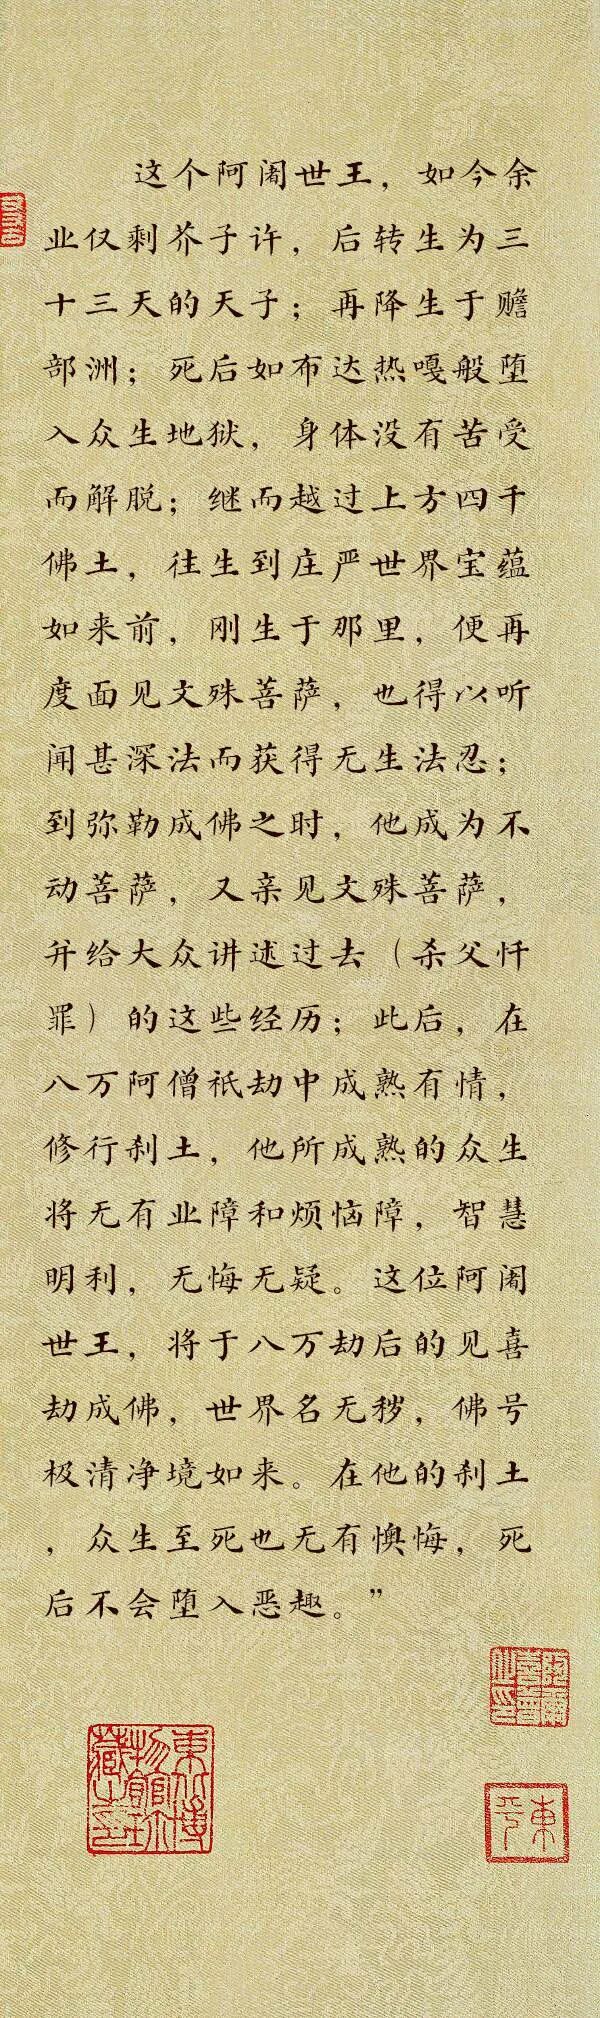 这个阿阇世王，如今余
业仅剩芥子许，后转生为三
十三天的天子；再降生于赡
部洲；死后如布达热嘎般堕
入众生地狱，身体没有苦受
而解脱；继而越过上方四千
佛土，往生到庄严世界宝蕴
如来前，刚生于那里，便再
度面见文殊菩萨，也得以听
闻甚深法而获得无生法忍；
到弥勒成佛之时，他成为不
动菩萨，又亲见文殊菩萨，
并给大众讲述过去（杀父忏
罪）的这些经历；此后，在
八万阿僧祇劫中成熟有情，
修行刹土，他所成熟的众生
将无有业障和烦恼障，智慧
明利，无悔无疑。这位阿阇
世王，将于八万劫后的见喜
劫成佛，世界名无秽，佛号
极清净境如来。在他的刹土
，众生至死也无有懊悔，死
后不会堕入恶趣。”